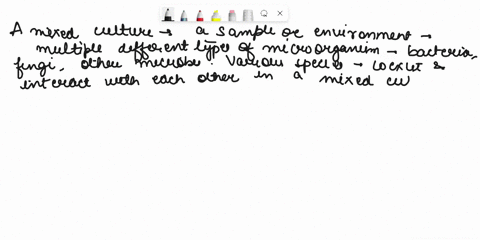 A mixed culture → a sample or environment →
multiple different types of microorganism → bacteria,
fungi, other microbe. Various species → coexist &
interact with each other in a mixed cu